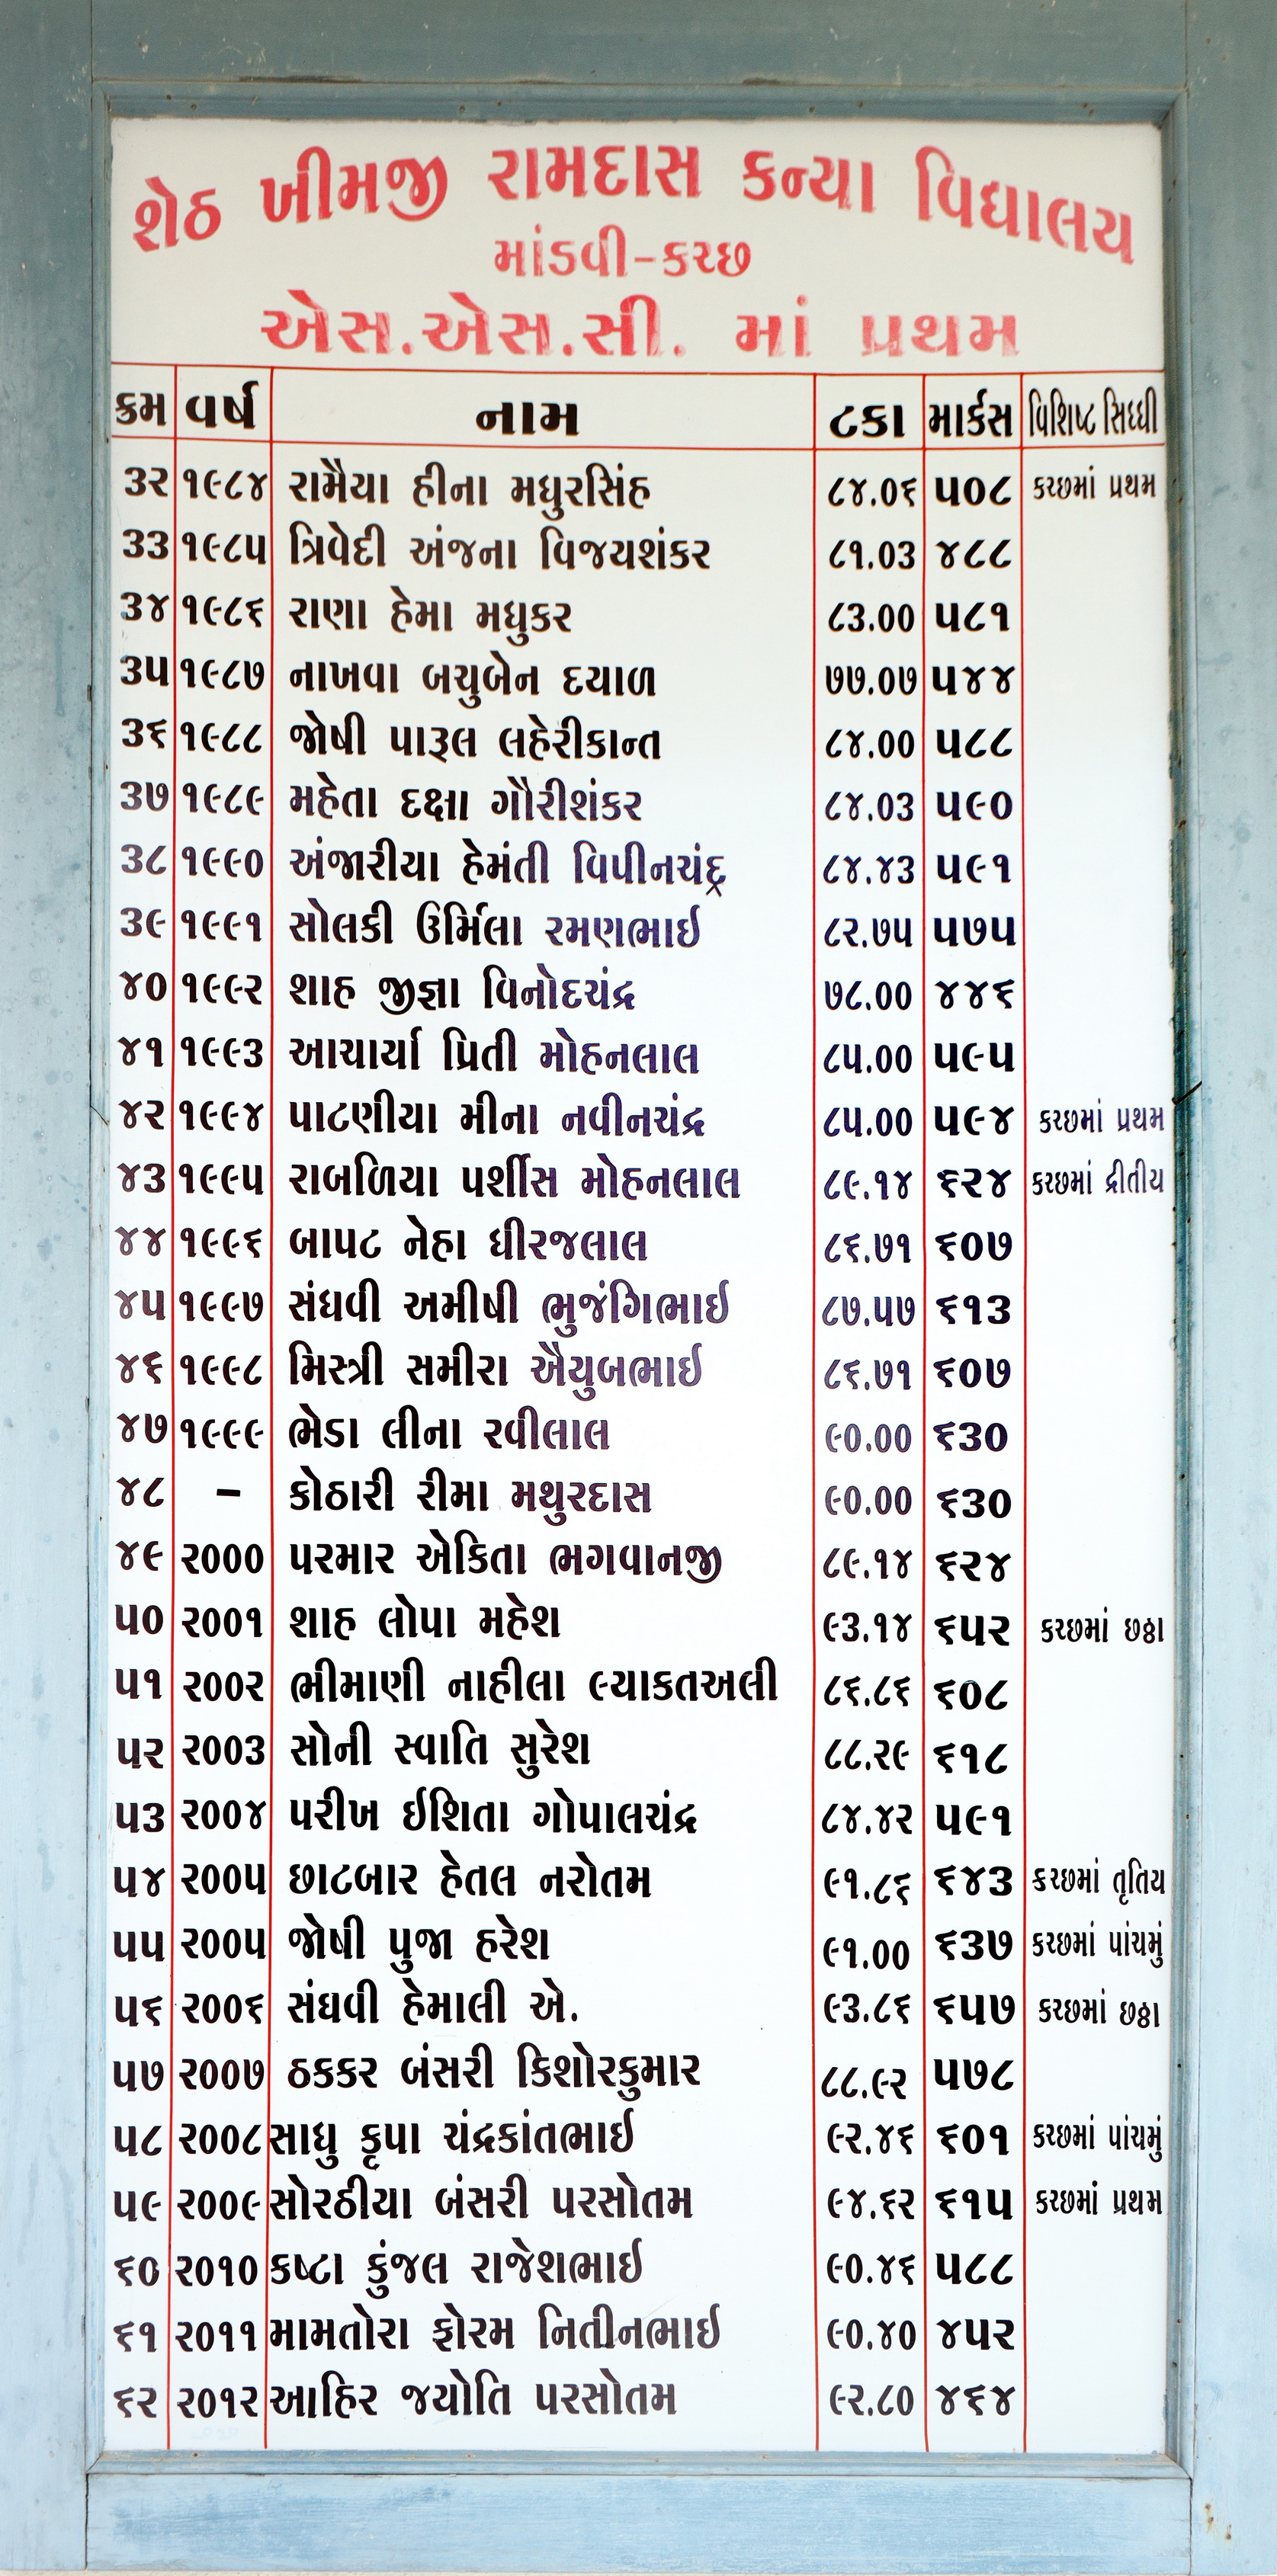 શેઠ ખીમજી રામદાસ કન્યા વિદ્યાલય
માંડવી-કચ્છ
એસ.એસ.સી. માં પ્રથમ
ક્રમ વર્ષ નામ ટકા માર્કસ વિશિષ્ટ સિધ્ધી
૩૨ ૧૯૮૪ રામૈયા હીના મધુરસિંહ ૮૪.૦૬ ૫૦૮ કચ્છમાં પ્રથમ
૩૩ ૧૯૮૫ ત્રિવેદી અંજના વિજયશંકર ૮૧.૦૩ ૪૮૮
૩૪ ૧૯૮૬ રાણા હેમા મધુકર ૮૩.૦૦ ૫૮૧
૩૫ ૧૯૮૭ નાખવા બચુબેન દયાળ ૭૭.૦૭ ૫૪૪
૩૬ ૧૯૮૮ જોષી પારૂલ લહેરીકાન્ત ૮૪.૦૦ ૫૮૮
૩૭ ૧૯૮૯ મહેતા દક્ષા ગૌરીશંકર ૮૪.૦૩ ૫૯૦
૩૮ ૧૯૯૦ અંજારીયા હેમંતી વિપીનચંદ્ર ૮૪.૪૩ ૫૯૧
૩૯ ૧૯૯૧ સોલકી ઉર્મિલા રમણભાઈ ૮૨.૭૫ ૫૭૫
૪૦ ૧૯૯૨ શાહ જીજ્ઞા વિનોદચંદ્ર ૭૮.૦૦ ૪૪૬
૪૧ ૧૯૯૩ આચાર્યા પ્રિતી મોહનલાલ ૮૫.૦૦ ૫૯૫
૪૨ ૧૯૯૪ પાટણીયા મીના નવીનચંદ્ર ૮૫.૦૦ ૫૯૪ કચ્છમાં પ્રથમ
૪૩ ૧૯૯૫ રાબળિયા પર્શીસ મોહનલાલ ૮૯.૧૪ ૬૨૪ કચ્છમાં દ્રીતીય
૪૪ ૧૯૯૬ બાપટ નેહા ધીરજલાલ ૮૬.૭૧ ૬૦૭
૪૫ ૧૯૯૭ સંઘવી અમીષી ભુજંગિભાઈ ૮૭.૫૭ ૬૧૩
૪૬ ૧૯૯૮ મિસ્ત્રી સમીરા ઐયુબભાઈ ૮૬.૭૧ ૬૦૭
૪૭ ૧૯૯૯ ભેડા લીના રવીલાલ ૯૦.૦૦ ૬૩૦
૪૮ – કોઠારી રીમા મથુરદાસ ૯૦.૦૦ ૬૩૦
૪૯ ૨૦૦૦ પરમાર એકિતા ભગવાનજી ૮૯.૧૪ ૬૨૪
૫૦ ૨૦૦૧ શાહ લોપા મહેશ ૯૩.૧૪ ૬૫૨ કચ્છમાં છઠ્ઠા
૫૧ ૨૦૦૨ ભીમાણી નાહીલા લ્યાકતઅલી ૮૬.૮૬ ૬૦૮
૫૨ ૨૦૦૩ સોની સ્વાતિ સુરેશ ૮૮.૨૯ ૬૧૮
૫૩ ૨૦૦૪ પરીખ ઈશિતા ગોપાલચંદ્ર ૮૪.૪૨ ૫૯૧
૫૪ ૨૦૦૫ છાટબાર હેતલ નરોતમ ૯૧.૮૬ ૬૪૩ કચ્છમાં તૃતિય
૫૫ ૨૦૦૫ જોષી પુજા હરેશ ૯૧.૦૦ ૬૩૭ કચ્છમાં પાંચમું
૫૬ ૨૦૦૬ સંઘવી હેમાલી એ. ૯૩.૮૬ ૬૫૭ કચ્છમાં છઠ્ઠા
૫૭ ૨૦૦૭ ઠકકર બંસરી કિશોરકુમાર ૮૮.૯૨ ૫૭૮
૫૮ ૨૦૦૮ સાધુ કૃપા ચંદ્રકાંતભાઈ ૯૨.૪૬ ૬૦૧ કચ્છમાં પાંચમું
૫૯ ૨૦૦૯ સોરઠીયા બંસરી પરસોતમ ૯૪.૬૨ ૬૧૫ કચ્છમાં પ્રથમ
૬૦ ૨૦૧૦ કષ્ટા કુંજલ રાજેશભાઈ ૯૦.૪૬ ૫૮૮
૬૧ ૨૦૧૧ મામતોરા ફોરમ નિતીનભાઈ ૯૦.૪૦ ૪૫૨
૬૨ ૨૦૧૨ આહિર જયોતિ પરસોતમ ૯૨.૮૦ ૪૬૪